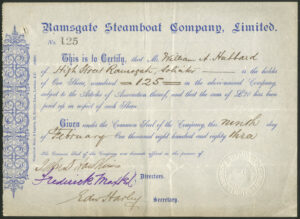 Ramsgate Steamboat Company, Limited.
No. 125
This is to Certify, that Mr William A. Hubbard
of High Street Ramsgate, Solicitor is the holder
of One Share, numbered 125 in the above-named Company,
subject to the Articles of Association thereof, and that the sum of £20 has been
paid up in respect of such Share.
Given under the Common Seal of the Company, the ninth day
of February One thousand eight hundred and eighty three
The Common Seal of the Company was hereunto affixed in the presence of
Directors.
Secretary.